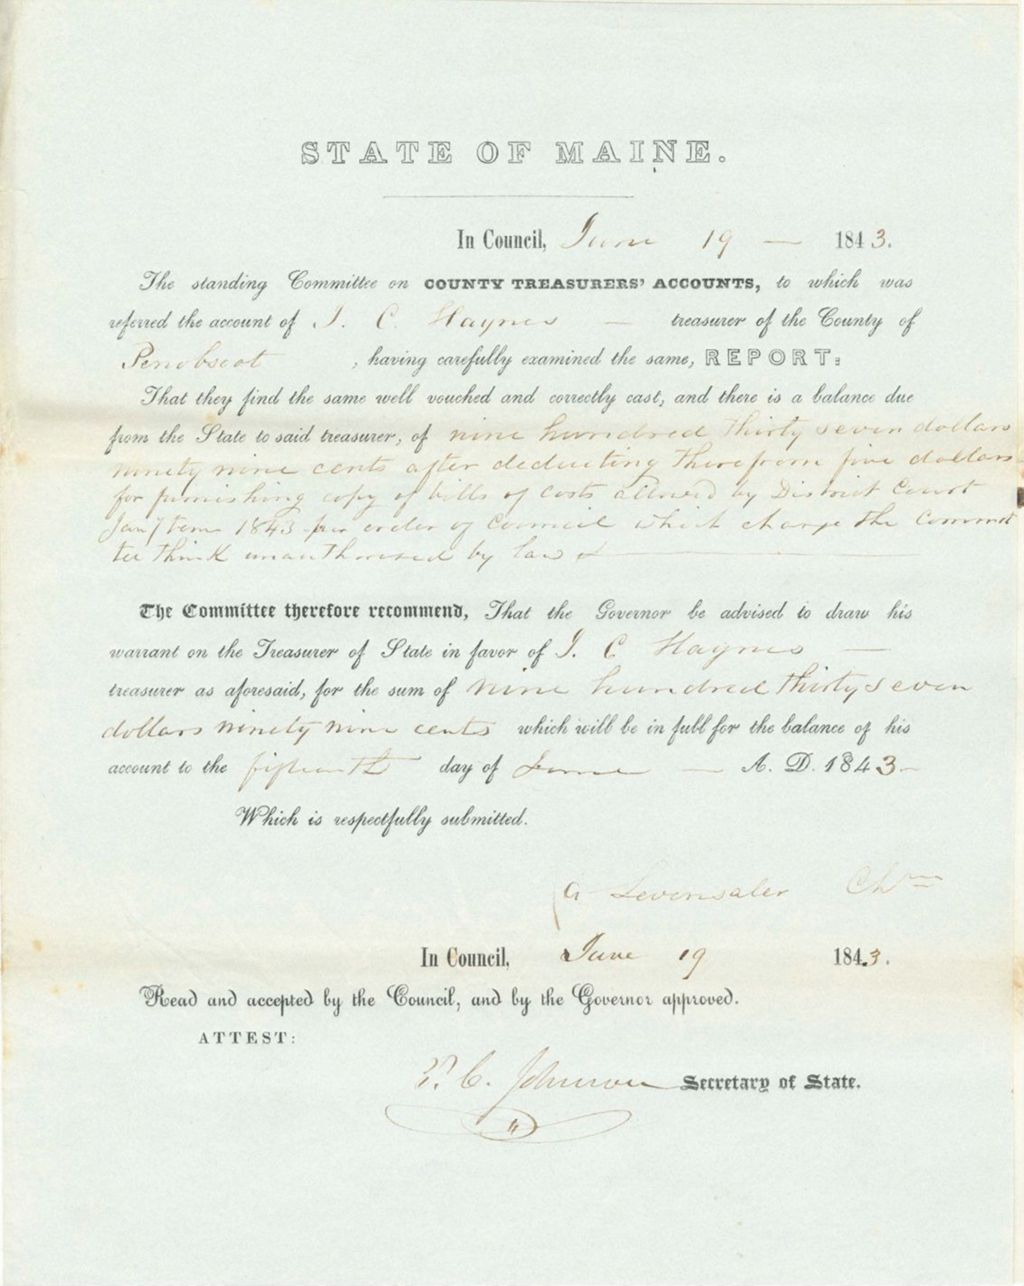 STATE OF MAINE.
In Council, June 19 — 1843.
The standing Committee on COUNTY TREASURERS' ACCOUNTS, to which was
referred the account of J. C. Haynes — treasurer of the County of
Penobscot , having carefully examined the same, REPORT:
That they find the same well vouched and correctly cast, and there is a balance due
from the State to said treasurer, of nine hundred thirty seven dollars
ninety nine cents after deducting therefrom five dollars
for furnishing copy of bills of costs allowed by District Court
Jany term 1843 per order of Council which charge the Commit
tee think unauthorised by law
The Committee therefore recommend, That the Governor be advised to draw his
warrant on the Treasurer of State in favor of J. C Haynes —
treasurer as aforesaid, for the sum of nine hundred thirty seven
dollars ninety nine cents which will be in full for the balance of his
account to the fifteenth day of June — A. D. 1843 -
Which is respectfully submitted.
A Levensaler Chm
In Council, June 19 1843.
Read and accepted by the Council, and by the Governor approved.
ATTEST:
P. C. Johnson Secretary of State.